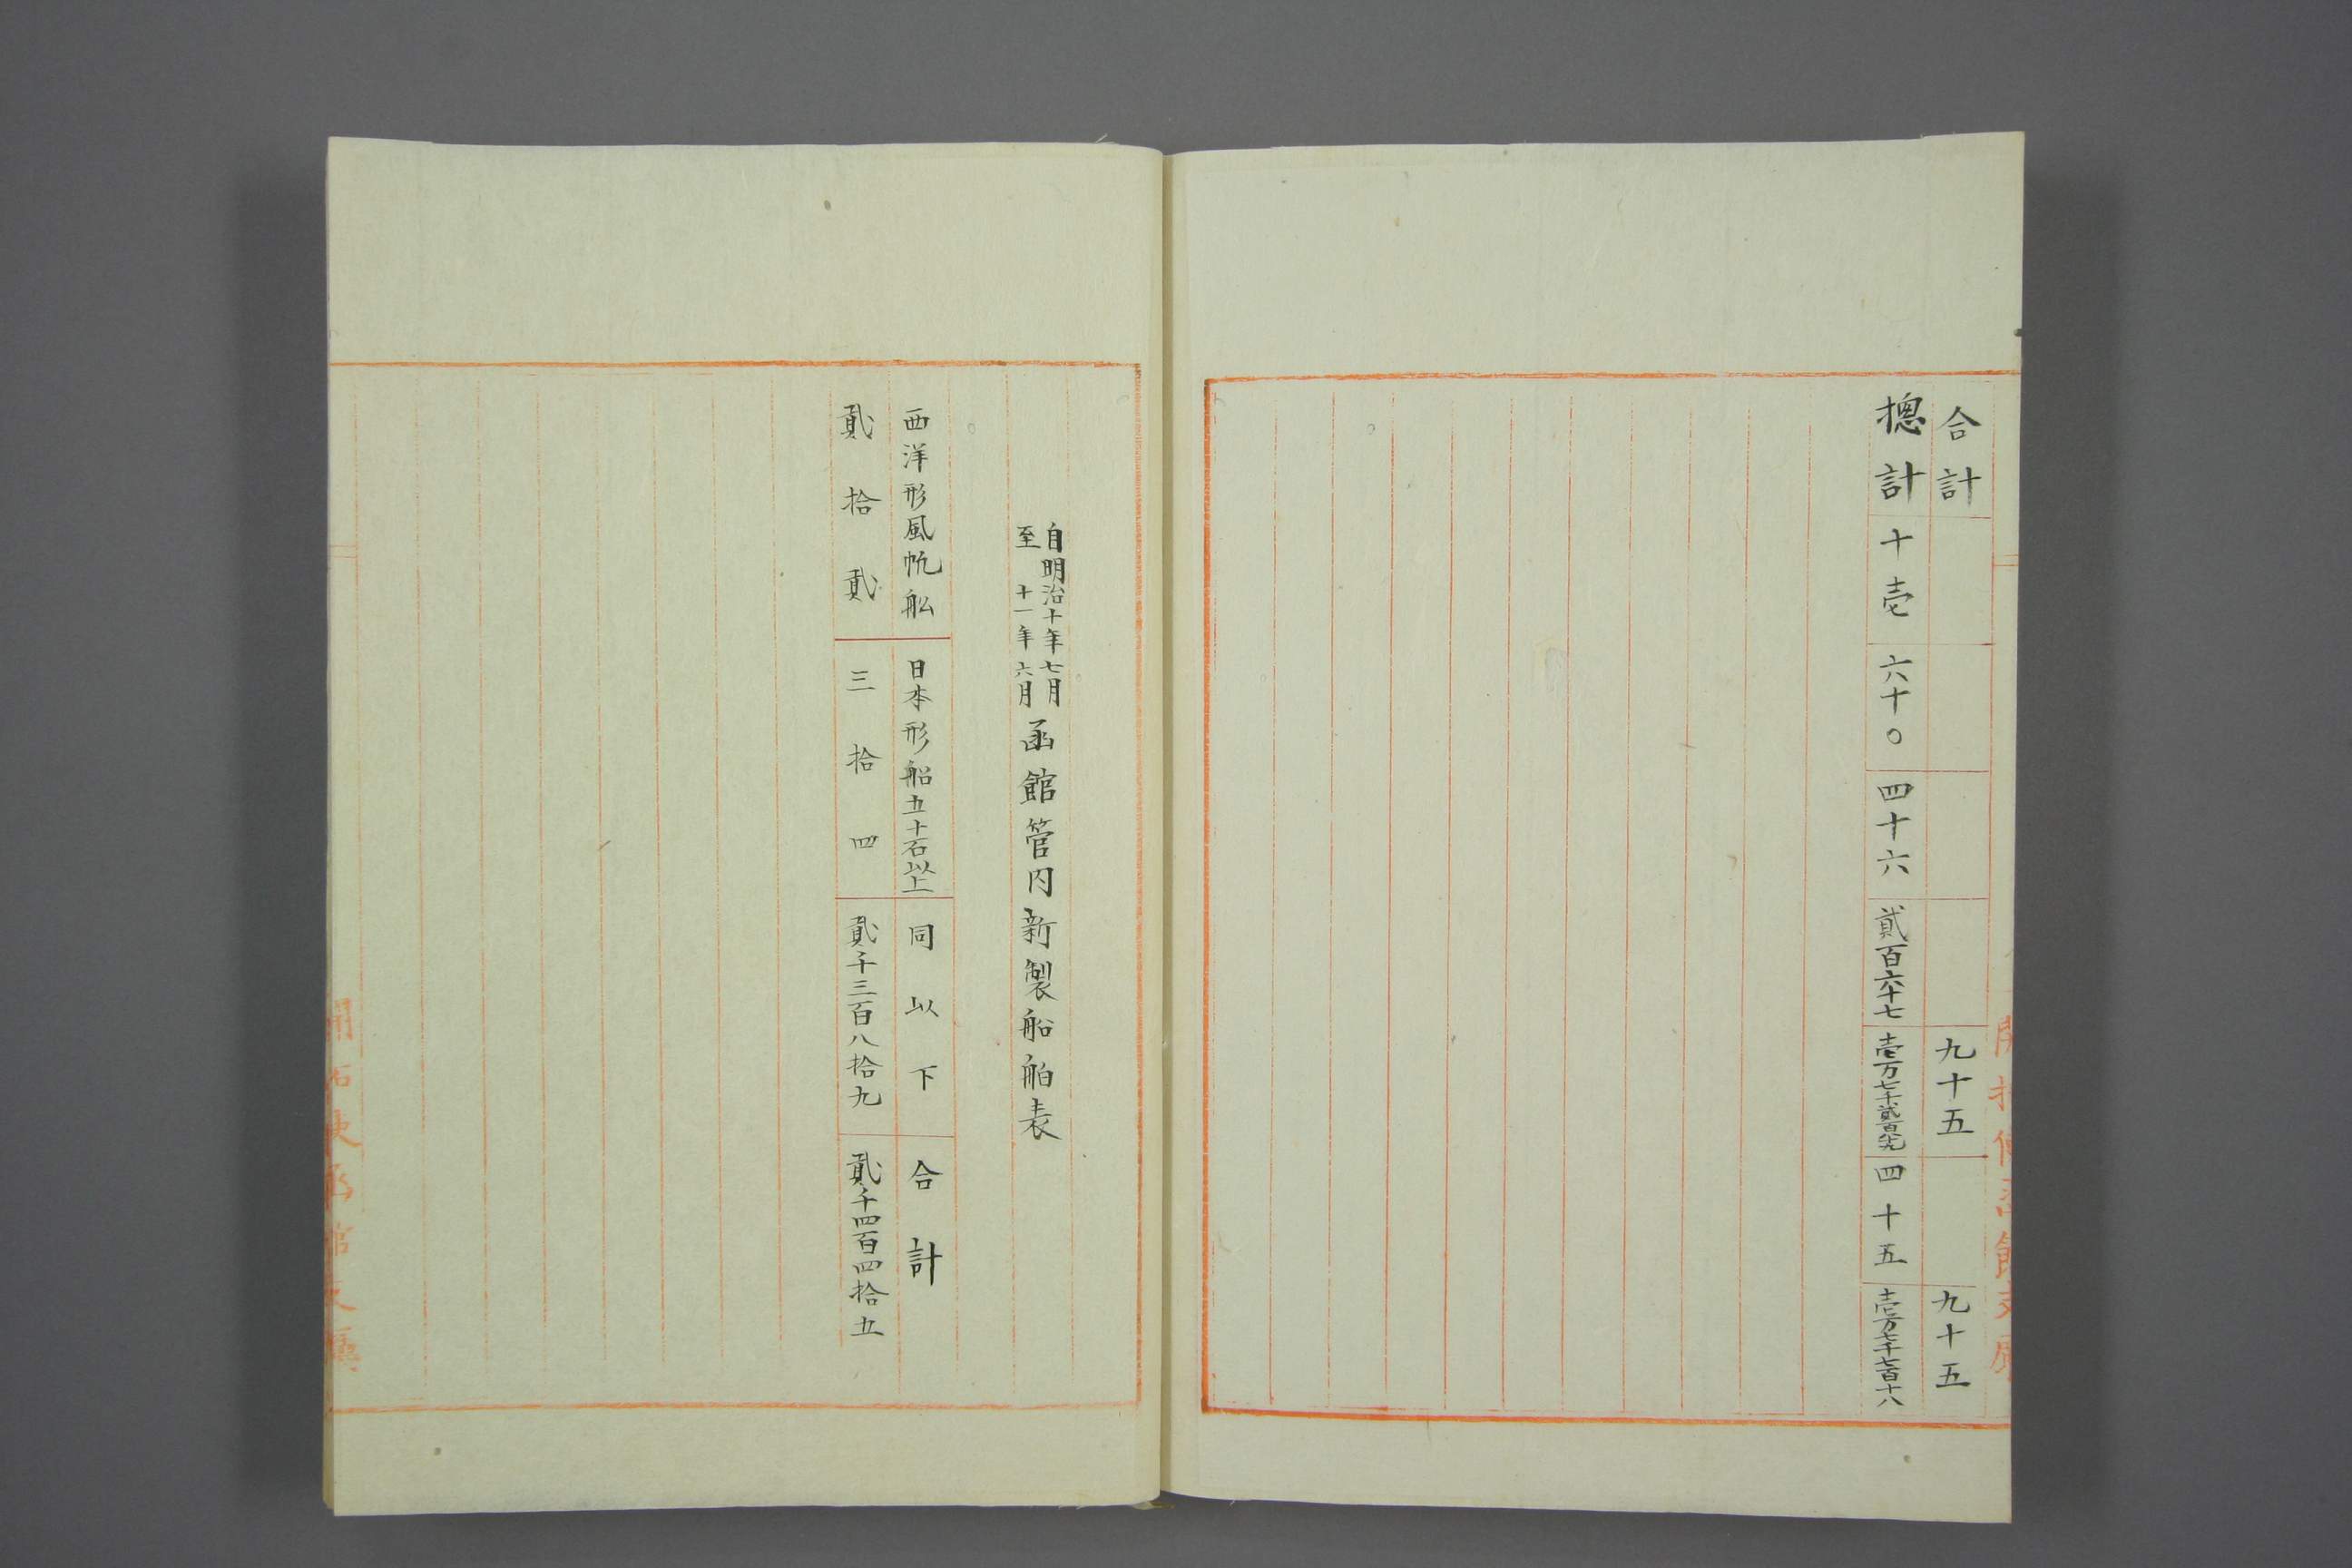 開拓使函館支廳
合計 九十五 九十五
摠計 十壱 六十〇 四十六 貳百六十七 壱万七千貳百八十九 四十五 壱万七千七百十八
自明治十年七月
至十一年六月
函館管内新製船舶表
西洋形風帆舩 日本形船五十石以上 同以下 合計
貳拾貳 三拾四 貳千三百八拾九 貳千四百四拾五
開拓使函館支廳